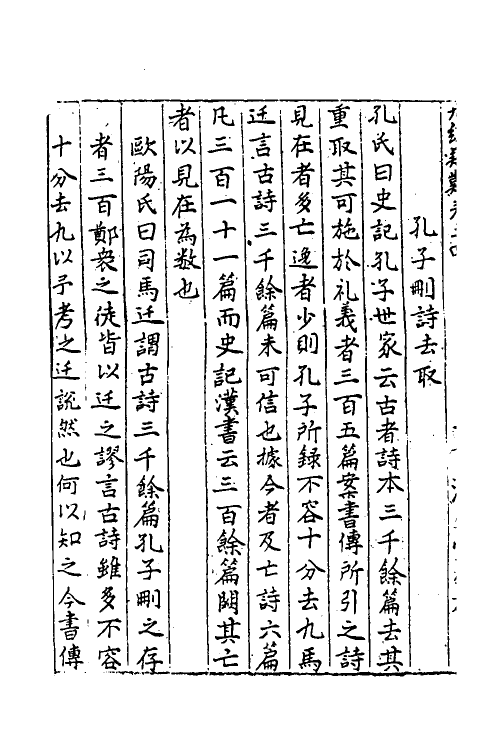 孔子刪詩去取
孔氏曰史記孔子世家云古者詩本三千餘篇去其
重取其可施於礼義者三百五篇案書傳所引之詩
見在者多亡逸者少則孔子所録不容十分去九馬
迁言古詩三千餘篇未可信也據今者及亡詩六篇
凡三百一十一篇而史記漢書云三百餘篇闕其亡
者以見在為数也
歐陽氏曰司馬迁謂古詩三千餘篇孔子刪之存
者三百鄭衆之徒皆以迁之謬言古詩雖多不容
十分去九以予考之迁說然也何以知之今書傳